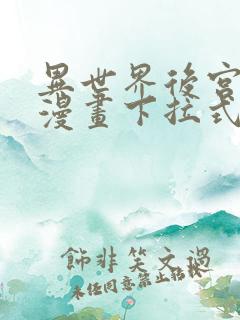 異世界後宮
漫畫下拉式
飾非笑文過
未經同意禁止轉載